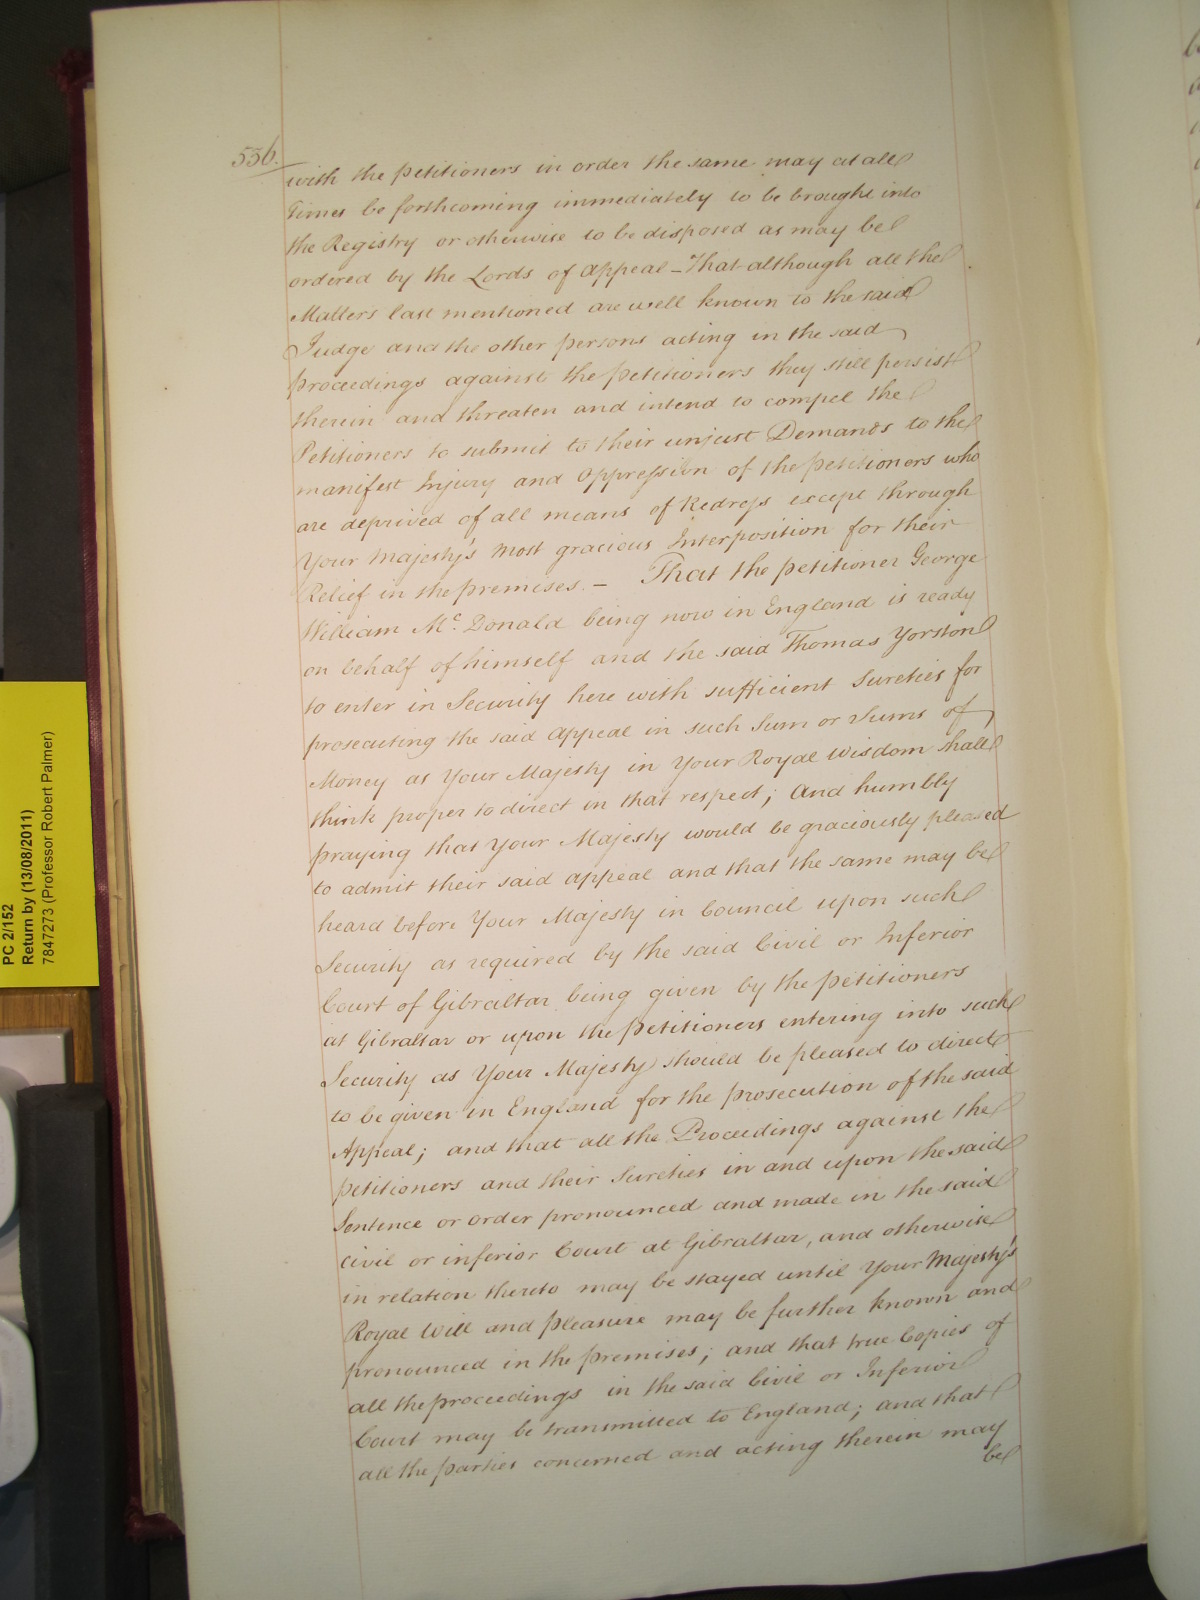 536.
with the petitioners in order the same may at all
Times be forthcoming immediately to be brought into
the Registry or otherwise to be disposed as may be
ordered by the Lords of Appeal – That although all the
Matters last mentioned are well known to the said
Judge and the other persons acting in the said
proceedings against the petitioners they still persist
therein and threaten and intend to compel the
Petitioners to submit to their unjust Demands to the
manifest Injury and Oppression of the petitioners who
are deprived of all means of Redress except through
Your Majesty's most gracious Interposition for their
Relief in the premises. – That the petitioner George
William Mc. Donald being now in England is ready
on behalf of himself and the said Thomas Yorston
to enter in Security here with sufficient Sureties for
prosecuting the said Appeal in such Sum or Sums of
Money as Your Majesty in Your Royal Wisdom shall
think proper to direct in that respect; And humbly
praying that Your Majesty would be graciously pleased
to admit their said appeal and that the same may be
heard before Your Majesty in Council upon such
Security as required by the said Civil or Inferior
Court of Gibraltar being given by the petitioners
at Gibraltar or upon the petitioners entering into such
Security as Your Majesty should be pleased to direct
to be given in England for the prosecution of the said
Appeal; and that all the Proceedings against the
petitioners and their Sureties in and upon the said
Sentence or order pronounced and made in the said
civil or inferior Court at Gibraltar, and otherwise
in relation thereto may be stayed until Your Majesty's
Royal Will and pleasure may be further known and
pronounced in the premises; and that true Copies of
all the proceedings in the said Civil or Inferior
Court may be transmitted to England; and that
all the parties concerned and acting therein may
be
PC 2/152
Return by (13/08/2011)
7847273 (Professor Robert Palmer)